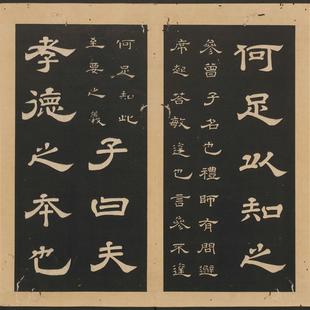 何足以知之
參曾子名也禮師有問避
席起答敏達也言參不達
何足知此
至要之義
子曰夫
孝德之本也